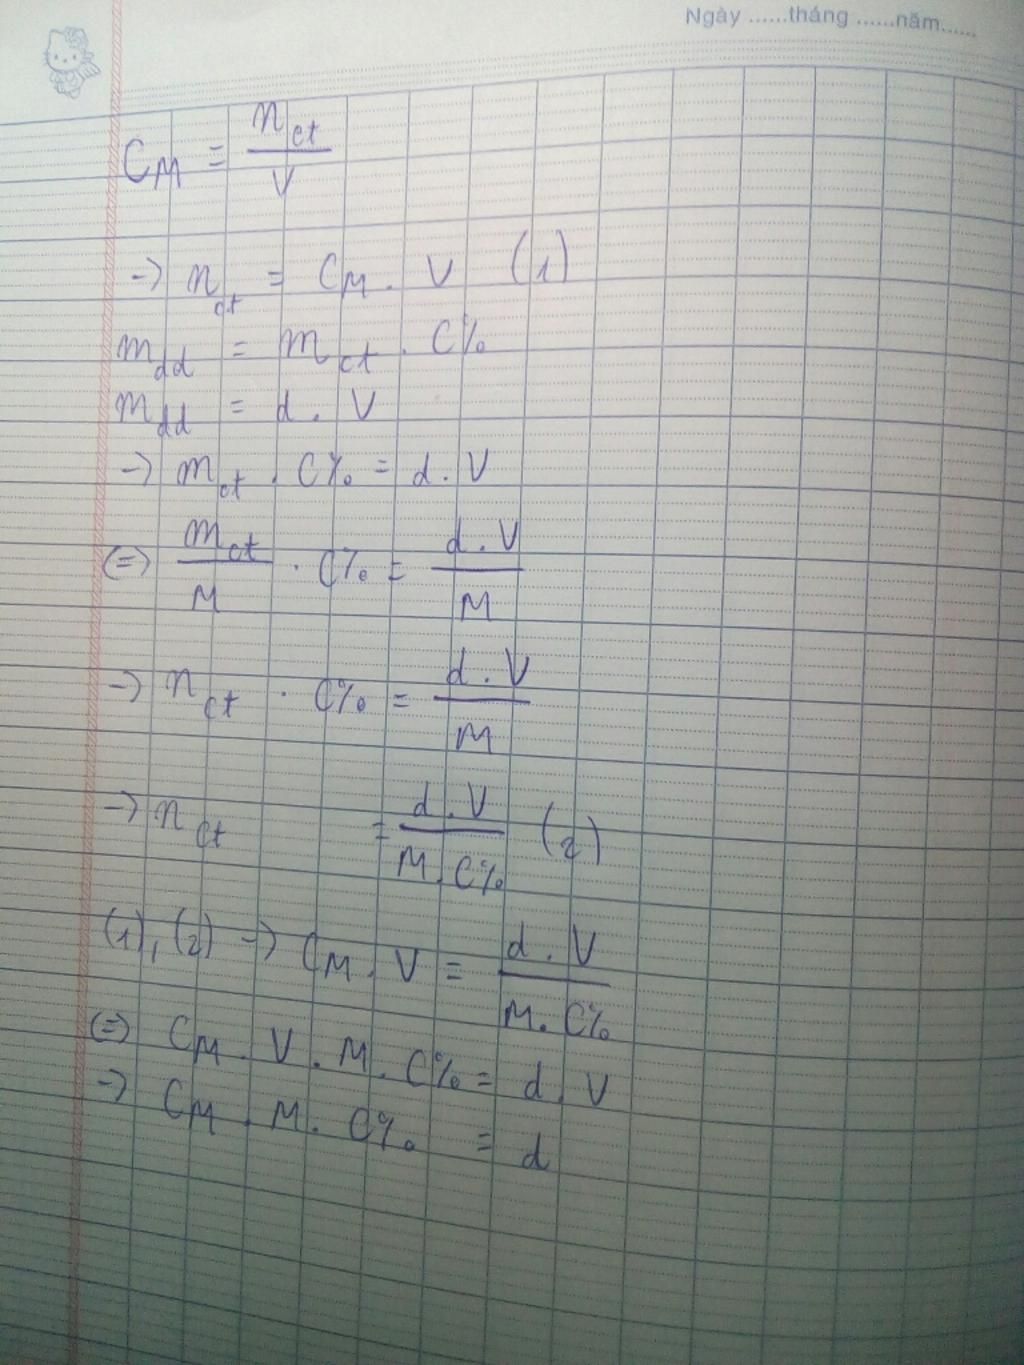 Ngày ......tháng ......năm......
C_M = n_ct / V
→ n_ct = C_M . V (1)
m_dd = m_ct . C%
m_dd = d . V
→ m_ct . C% = d . V
⇔ m_ct / M . C% = d . V / M
→ n_ct . C% = d . V / M
→ n_ct = d . V / M . C% (2)
(1), (2) → C_M . V = d . V / M . C%
⇔ C_M . V . M . C% = d . V
→ C_M . M . C% = d